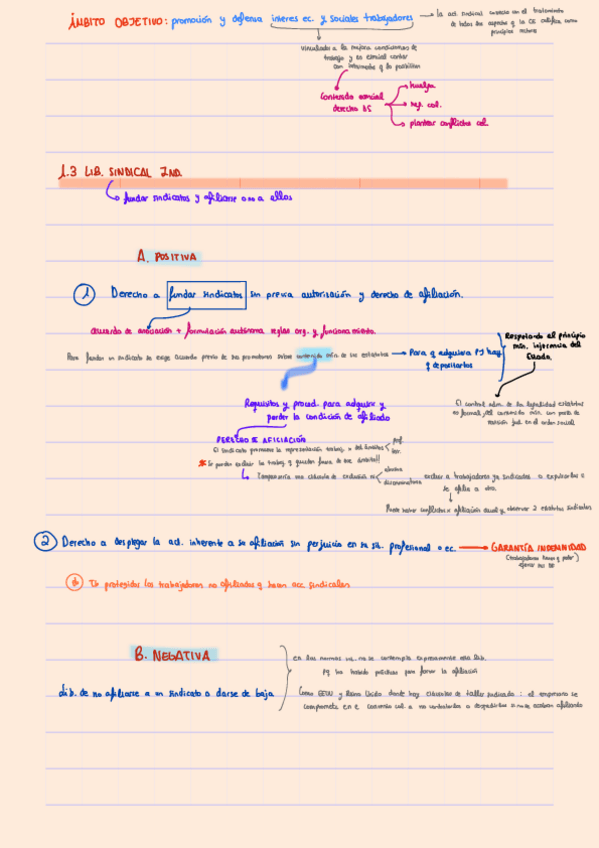 ÁMBITO OBJETIVO: promoción y defensa interes ec. y sociales trabajadores
la act. sindical consiste en el tratamiento
de todos los aspectos q la CE califica como
principios rectores
vinculados a la mejora condiciones de
trabajo y es esencial contar
con instrumentos q lo posibiliten
Contenido esencial
derecho LS
huelga
neg. col.
plantear conflictos col.
1.3 LIB. SINDICAL IND.
fundar sindicatos y afiliarse o no a ellos
A. POSITIVA
1 Derecho a fundar sindicatos sin previa autorización y derecho de afiliación.
acuerdo de asociación + formulación autónoma reglas org. y funcionamiento.
Respetando el principio
mín. injerencia del
Estado.
Para fundar un sindicato se exige acuerdo previo de sus promotores sobre contenido mín. de los estatutos
Para q adquiera PJ hay
q depositarlos
El control adm. de la legalidad estatutos
es formal, del contenido mín. con posib. de
revisión jud. en el orden social
Requisitos y proced. para adquirir y
perder la condición de afiliado
DERECHO DE AFILIACIÓN
El sindicato promueve la representación trabaj. o del ámbito
prof.
terr.
* Se pueden excluir los trabaj. q queden fuera de ese ámbito!!
Compondría una cláusula de exclusión
abusiva
discriminatoria
excluir a trabajadores ya sindicados o expulsarlos si
se afilia a otro.
Puede haber conflictos x afiliación dual y observar 2 estatutos sindicales
2 Derecho a desplegar la act. inherente a su afiliación sin perjuicio en su sit. profesional o ec.
GARANTÍA INDEMNIDAD
(trabajadores tienen q poder)
ejercer sus DF
* Tb protegidos los trabajadores no afiliados q hacen acc. sindicales
B. NEGATIVA
en las normas int. no se contempla expresamente esta lib.
pq ha habido prácticas para forzar la afiliación
Lib. de no afiliarse a un sindicato o darse de baja
Como EEUU y Reino Unido donde hay cláusulas de taller sindicado: el empresario se
compromete en el convenio col. a no contratarlos o despedirlos si no se acaban afiliando